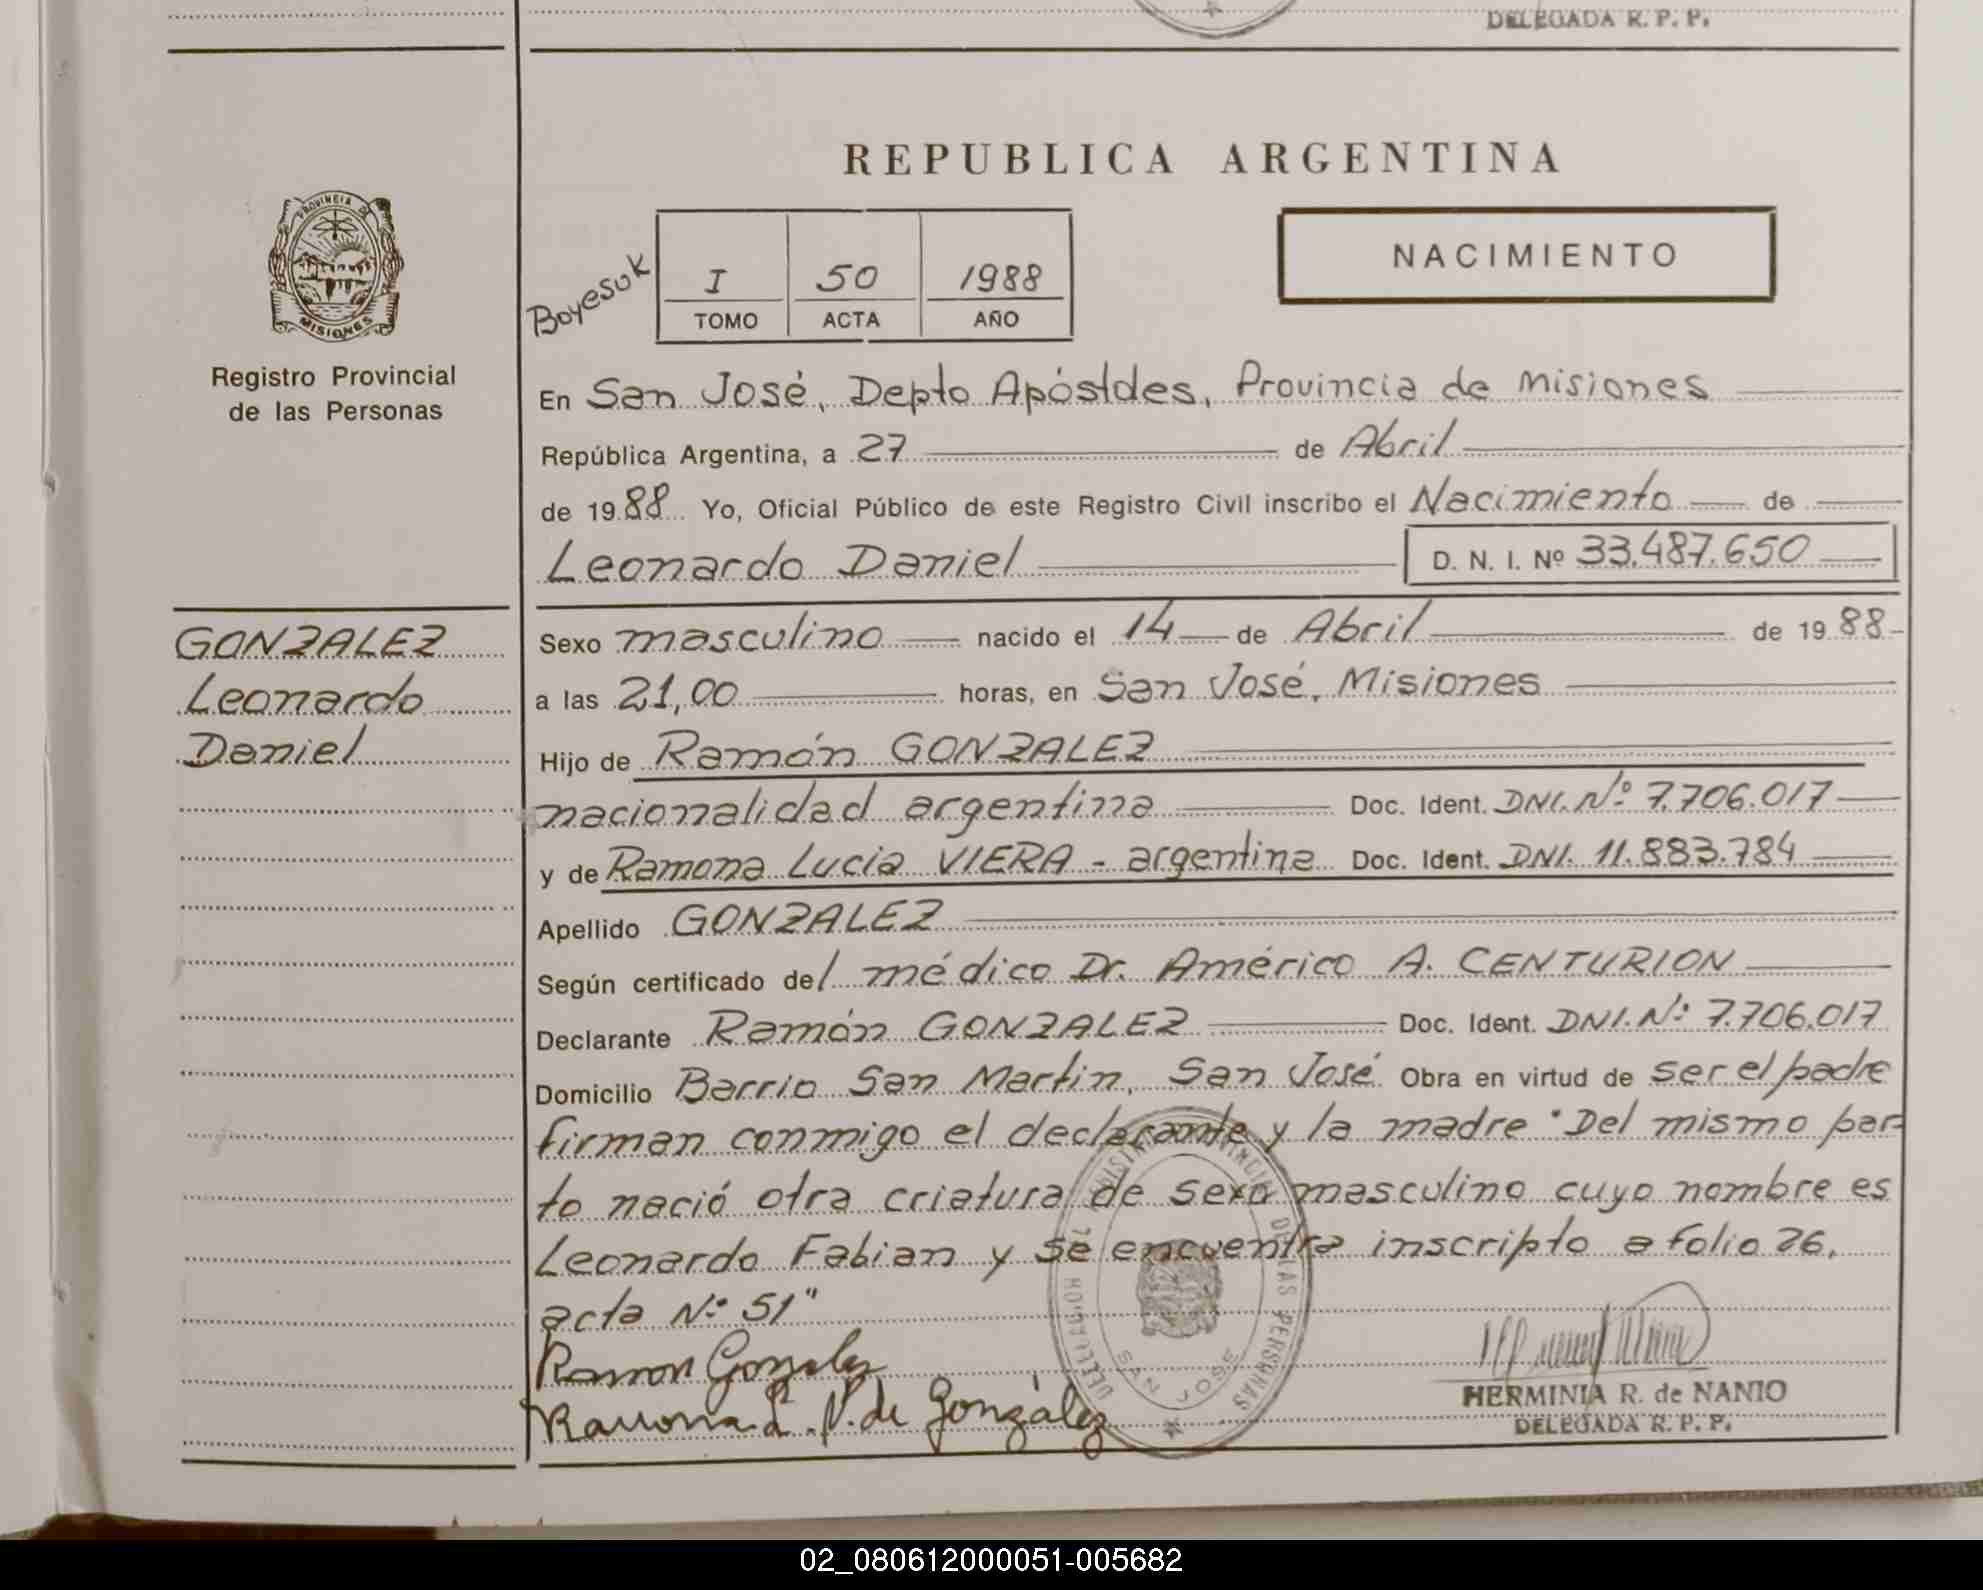 DELEGADA R. P. P.
REPUBLICA ARGENTINA
PROVINCIA DE
MISIONES
Registro Provincial
de las Personas
NACIMIENTO
Boyesuk
I 50 1988
TOMO ACTA AÑO
En San José, Depto Apóstoles, Provincia de Misiones
República Argentina, a 27 de Abril
de 1988 Yo, Oficial Público de este Registro Civil inscribo el Nacimiento de
Leonardo Daniel D. N. I. Nº 33.487.650
GONZALEZ
Leonardo
Daniel
Sexo masculino nacido el 14 de Abril de 1988
a las 21,00 horas, en San José, Misiones
Hijo de Ramón GONZALEZ
nacionalidad argentina Doc. Ident. DNI. Nº 7.706.017
y de Ramona Lucia VIERA - argentina Doc. Ident. DNI. 11.883.784
Apellido GONZALEZ
Según certificado del médico Dr. Américo A. CENTURION
Declarante Ramón GONZALEZ Doc. Ident. DNI. Nº 7.706.017
Domicilio Barrio San Martin, San José Obra en virtud de ser el padre
firman conmigo el declarante y la madre "Del mismo par-
to nació otra criatura de sexo masculino cuyo nombre es
Leonardo Fabian y se encuentra inscripto a folio 26,
acta Nº 51"
Ramon Gonzalez
Ramona L. V. de González
DE LAS PERSONAS
SAN JOSE
HERMINIA R. de NANIO
DELEGADA R. P. P.
02_080612000051-005682